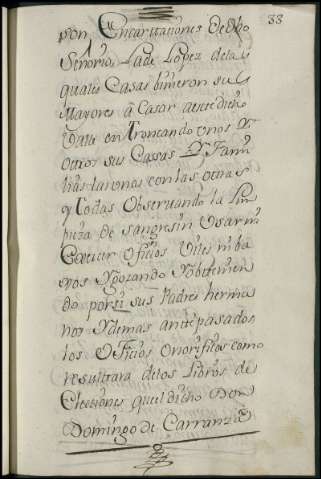 33
por Encartaciones De dho
Señorio, La de Lopez delas
quales Casas binieron sus
Mayores â Casar aeste dicho
Valle en Troncando unos y
otros sus Cassas y Fami
lias las unas con las otras
y Todas Observando la Lim
pieza de sangre sin Usar ni
Exercer Oficios Viles ni ba
xos Y gozando Y obtenien
do por si sus Padres herma
nos Y demas antepasados,
los Oficios onorificos como
resultara delos Libros de
Elecciones que el dicho Don
Domingo de Carranza